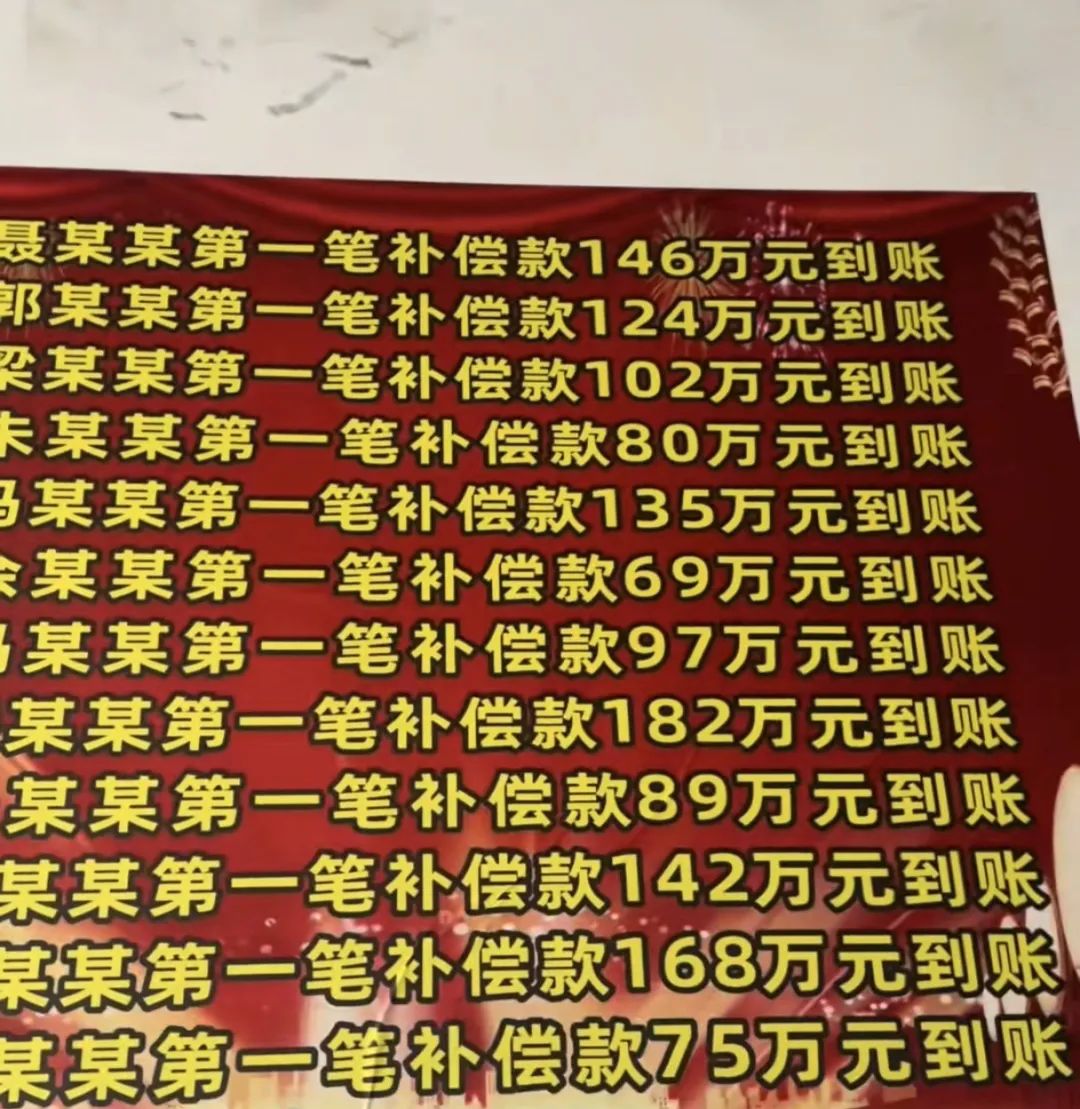 聂某某第一笔补偿款146万元到账
郭某某第一笔补偿款124万元到账
梁某某第一笔补偿款102万元到账
朱某某第一笔补偿款80万元到账
冯某某第一笔补偿款135万元到账
余某某第一笔补偿款69万元到账
某某第一笔补偿款97万元到账
某某第一笔补偿款182万元到账
某某第一笔补偿款89万元到账
某某第一笔补偿款142万元到账
某某第一笔补偿款168万元到账
某某第一笔补偿款75万元到账